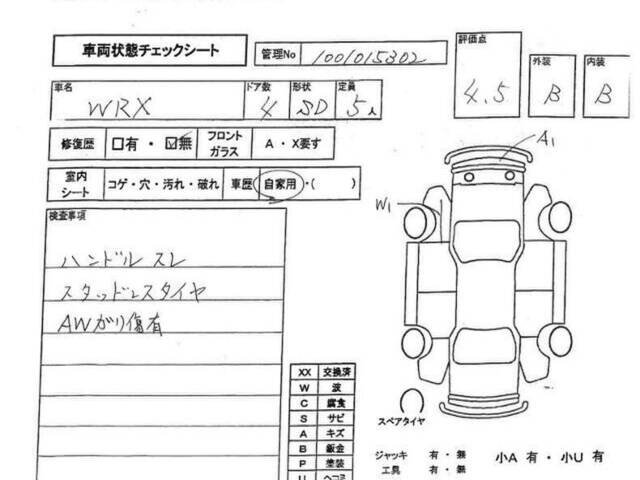 車両状態チェックシート 管理No 1001015302
評価点 4.5 外装 B 内装 B
車名 WRX ドア数 4 形状 SD 定員 5人
修復歴 □有・☑無 フロントガラス A・X要す
室内シート コゲ・穴・汚れ・破れ 車歴 自家用・( )
検査事項
ハンドル スレ
スタッドレスタイヤ
AWガリ傷有
A1
W1
XX 交換済
W 波
C 腐食
S サビ
A キズ
B 鈑金
P 塗装
U ヘコミ
スペアタイヤ
ジャッキ 有・無 小A 有・小U 有
工具 有・無